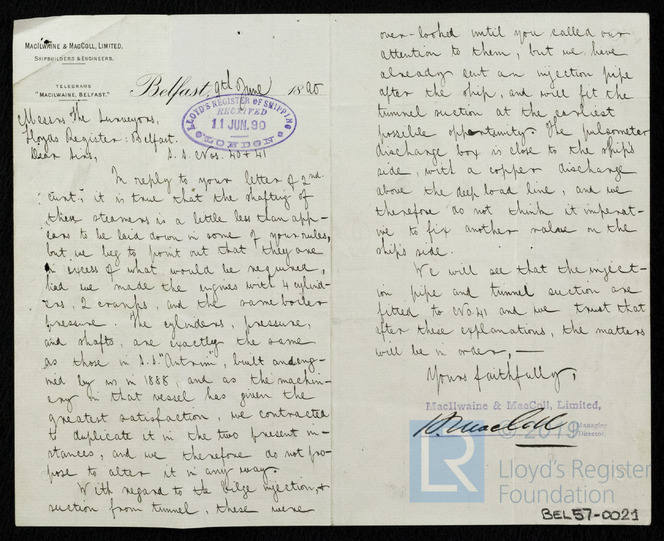 MacIlwaine & MacColl, Limited,
Shipbuilders & Engineers.
Telegrams
"MacIlwaine, Belfast."
Belfast, 9th June 1890
LLOYD'S REGISTER OF SHIPPING
RECEIVED
11 JUN. 90
LONDON
Messrs The Surveyors,
Lloyds Register: Belfast.
Dear Sirs, S.S. Nos. 40 & 41
In reply to your letter of 2nd
curt; it is true that the shafting of
these steamers is a little less than app-
ears to be laid down in some of your rules,
but we beg to point out that they are
in excess of what would be required,
had we made the engines with 4 cylind-
ers, 2 cranks, and the same boiler
pressure. The cylinders, pressure,
and shafts, are exactly the same
as those in S.S. "Antrim", built and eng-
ined by us in 1888, and as the machin-
ery in that vessel has given the
greatest satisfaction, we contracted
to duplicate it in the two present in-
stances, and we therefore do not pro-
pose to alter it in any way.
With regard to the bilge injection, &
suction from tunnel, these were
over-looked until you called our
attention to them, but we have
already sent an injection pipe
after the ship, and will fit the
tunnel suction at the earliest
possible opportunity. The pulsometer
discharge box is close to the ships
side, with a copper discharge
above the deep load line, and we
therefore do not think it imperat-
ive to fix another valve on the
ships side.
We will see that the inject-
ion pipe and tunnel suction are
fitted to No. 41 and we trust that
after these explanations, the matters
will be in order, —
Yours faithfully,
MacIlwaine & MacColl, Limited,
H. MacColl
Managing
Director.
© 2019
LR
Lloyd's Register
Foundation
BEL57-0021